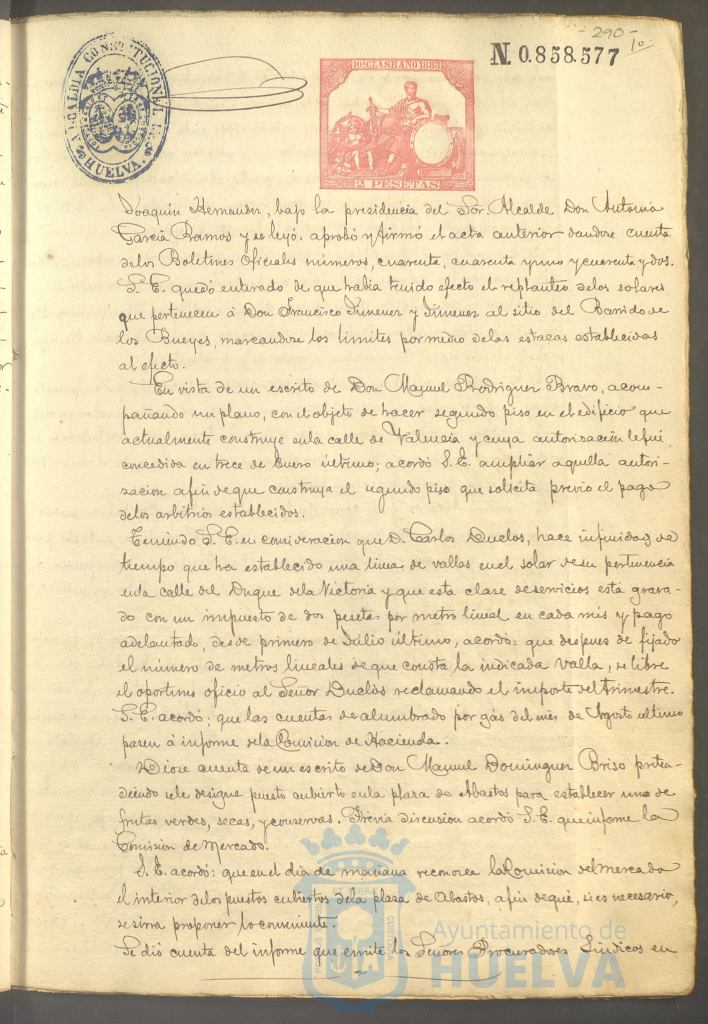 - 290 -
10
N. 0.858.577
ALCALDIA CONSTITUCIONAL DE
HUELVA.
10ª CLASE AÑO 1883
2 PESETAS
Joaquin Hernandez, bajo la presidencia del Sor. Alcalde Don Antonio
Garcia Ramos y se leyó. aprobó y firmó el acta anterior dandose cuenta
delos Boletines Oficiales números, cuarenta, cuarenta y uno y cuarenta y dos.
S. E. quedó enterado de que habia tenido efecto el replanteo delos solares
que pertenecen á Don Francisco Jimenez y Jimenez al sitio del Barrido de
los Bueyes, marcandose los limites por medio delas estacas establecidas
al efecto.
En vista de un escrito de Don Manuel Rodriguez Bravo, acom-
pañando un plano, con el objeto de hacer segundo piso en el edificio que
actualmente construye enla calle de Valencia y cuya autorización le fué
concedida en trece de Enero último; acordó S. E. ampliar aquella autori-
zacion afin de que construya el segundo piso que solicita previo el pago
delos arbitrios establecidos.
Teniendo S. E. en consideracion que D. Carlos Duclos, hace infinidad de
tiempo que ha establecido una linea de vallas en el solar de su pertenencia
enla calle del Duque dela Victoria y que esta clase de servicios está grava-
do con un impuesto de dos pesetas por metro lineal en cada mes y pago
adelantado, desde primero de Julio último, acordó: que despues de fijado
el número de metros lineales de que consta la indicada valla, se libre
el oportuno oficio al Señor Duclós reclamando el importe del trimestre.
S. E. acordó; que las cuentas de alumbrado por gás del mes de Agosto ultimo
pasen á informe dela Comision de Hacienda.
Dióse cuenta de un escrito de Don Manuel Dominguez Briso preten-
diendo se le designe puesto cubierto enla plaza de Abastos para establecer uno de
frutas verdes, secas, y conservas. Prévia discusion acordó S. E. que informe la
Comision de Mercado.
S. E. acordó: que en el dia de mañana reconozca la Comision del Mercado
el interior delos puestos cubiertos dela plaza de Abastos, afin deque, si es necesario,
se sirva proponer lo conveniente.
Se dió cuenta del informe que emite los Señores Procuradores Sindicos en
Ayuntamiento de
HUELVA